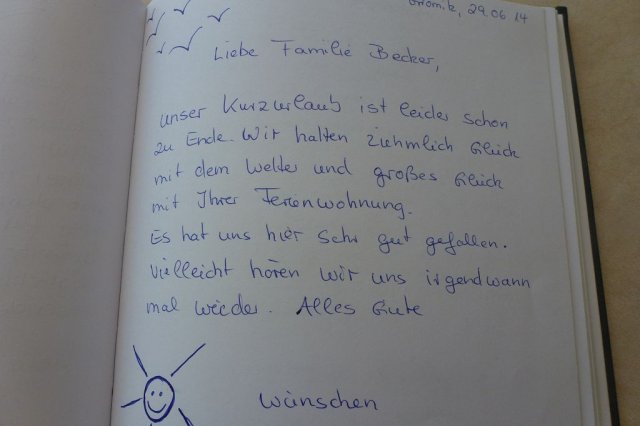 29.06.14
Liebe Familie Becker,
unser Kurzurlaub ist leider schon
zu Ende. Wir hatten ziehmlich Glück
mit dem Wetter und großes Glück
mit Ihrer Ferienwohnung.
Es hat uns hier sehr gut gefallen.
Vielleicht hören wir uns irgendwann
mal wieder. Alles Gute
wünschen